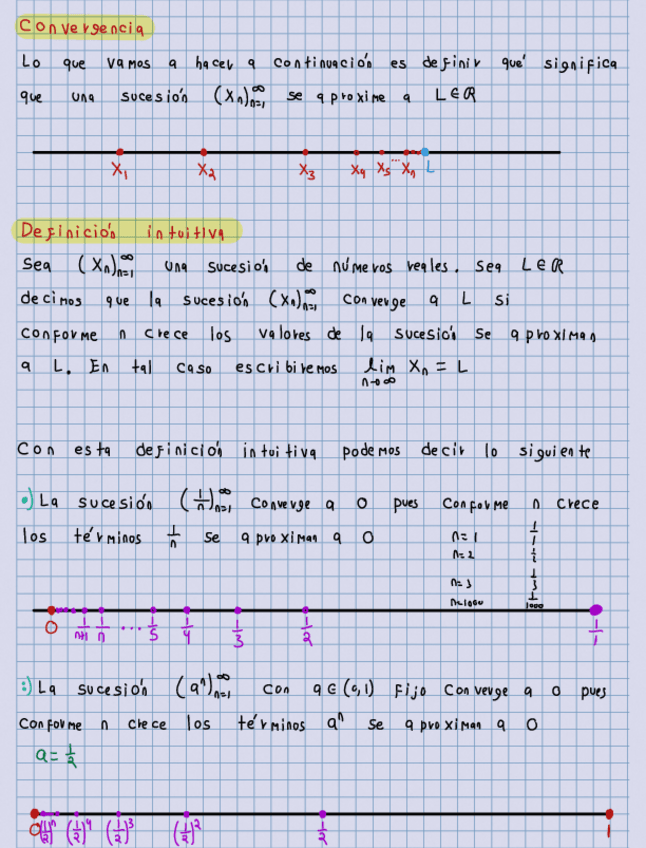 Convergencia
Lo que vamos a hacer a continuación es definir qué significa
que una sucesión (Xn)_{n=1}^∞ se aproxime a L∈ℝ
X₁ X₂ X₃ X₄ X₅ ... Xn L
Definición intuitiva
Sea (Xn)_{n=1}^∞ una sucesión de números reales. Sea L∈ℝ
decimos que la sucesión (Xn)_{n=1}^∞ converge a L si
conforme n crece los valores de la sucesión se aproximan
a L. En tal caso escribiremos lim_{n→∞} Xn = L
Con esta definición intuitiva podemos decir lo siguiente
•) La sucesión (1/n)_{n=1}^∞ converge a 0 pues conforme n crece
los términos 1/n se aproximan a 0
n=1 1/1
n=2 1/2
n=3 1/3
n=1000 1/1000
0 1/n+1 1/n ... 1/5 1/4 1/3 1/2 1/1
:) La sucesión (aⁿ)_{n=1}^∞ con a∈(0,1) fijo converge a 0 pues
conforme n crece los términos aⁿ se aproximan a 0
a=1/2
0 (1/2)ⁿ (1/2)⁴ (1/2)³ (1/2)² 1/2 1